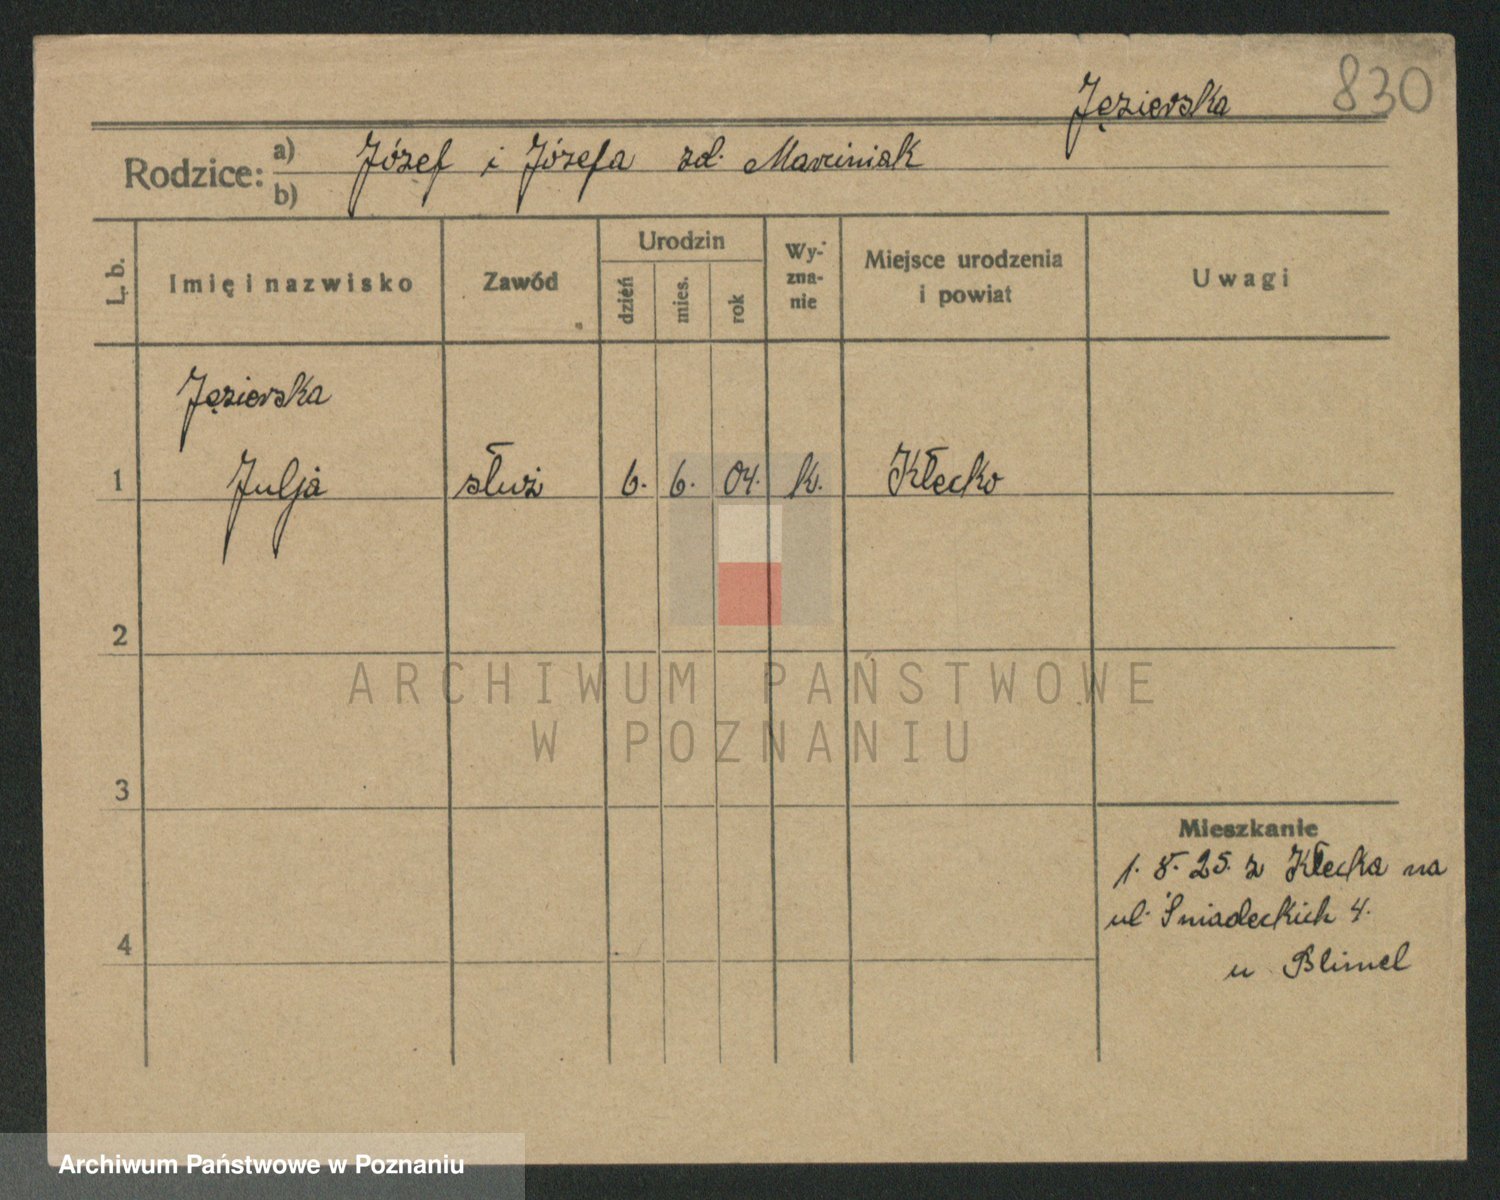 830
Jęzierska
Rodzice: a) Józef i Józefa zd. Marciniak
b)
L. b.
Imię i nazwisko
Zawód
Urodzin
dzień
mies.
rok
Wy-
zna-
nie
Miejsce urodzenia
i powiat
Uwagi
Jęzierska
1 Julja służ 6. 6. 04. k. Kłecko
2
3
4
Mieszkanie
1. 8. 25. z Kłecka na
ul. Śniadeckich 4.
u Blimel
ARCHIWUM PAŃSTWOWE
W POZNANIU
Archiwum Państwowe w Poznaniu